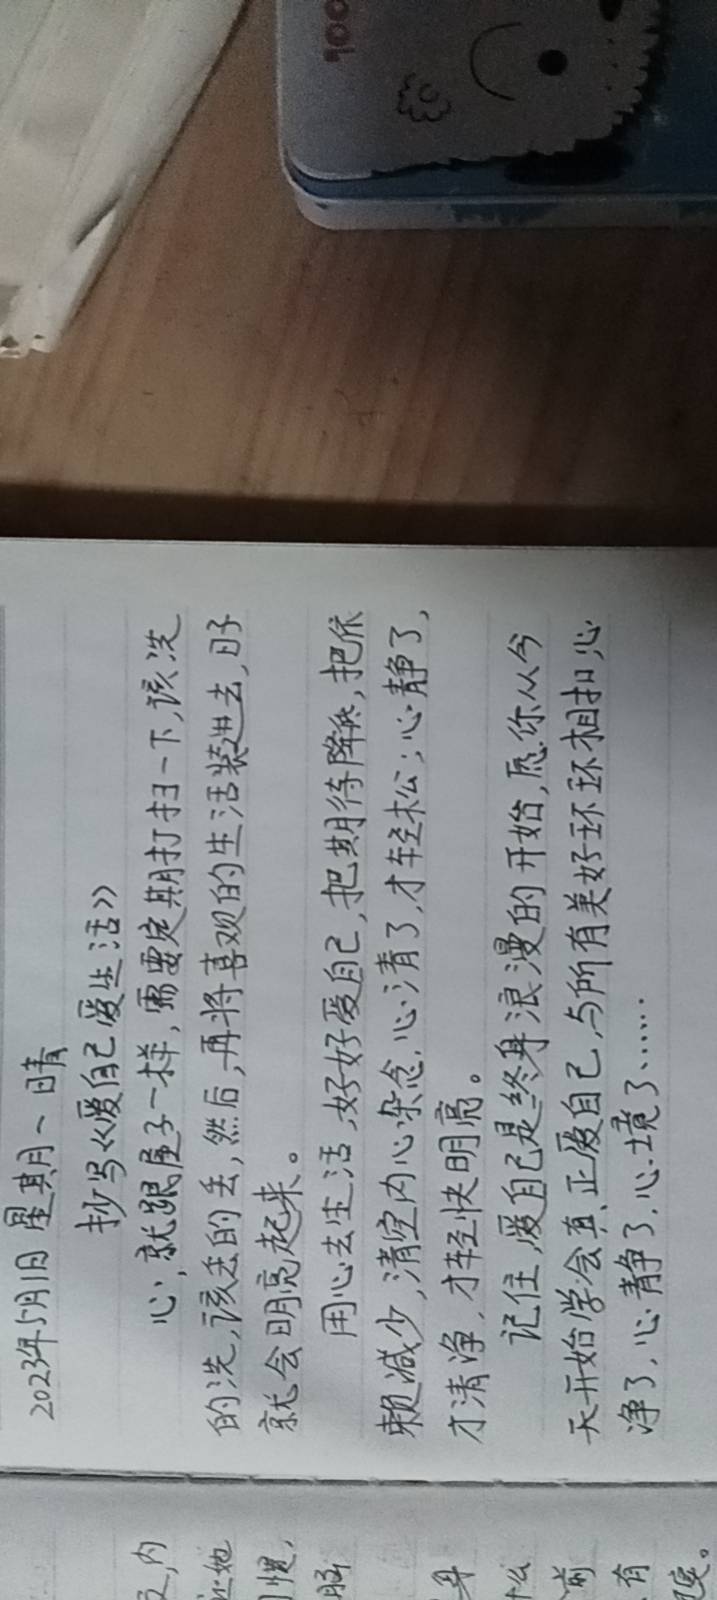 2023年5月1日 星期一 晴
抄写《爱自己爱生活》
心,就跟屋子一样,需要定期打扫一下,该洗
的洗,该丢的丢,然后,再将喜欢的生活装进去,日子
就会明亮起来。
用心去生活,好好爱自己,把期待降低,把依
赖减少,清空内心杂念,心清了,才轻松;心静了,
才清净,才轻快明亮。
记住,爱自己是终身浪漫的开始,愿你从今
天开始学会真正爱自己,与所有美好环环相扣,心
净了,心静了,心境了……
,内
她
惯,
身
什么
前
有
。